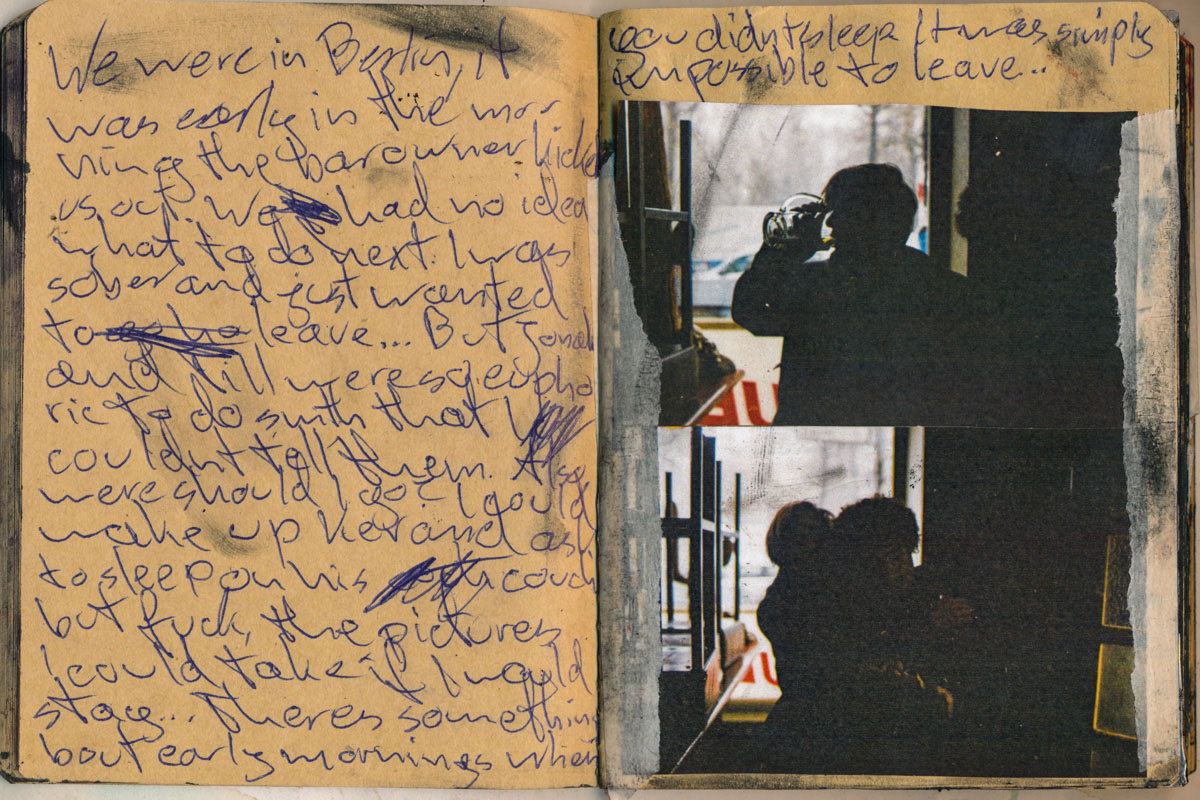 We were in Berlin, it
was early in the mor-
ning the bar owner kicke
us out. We had no idea
what to do next. I was
sober and just wanted
to leave... But Jonas
and Till were so eupho
ric to do smth that I
couldnt tell them. Also
were should I go? I could
wake up Ker and ask
to sleep on his couch
but fuck, the pictures
I could take if I would
stay... Theres something
bout early mornings when
you didnt sleep. It was simply
impossible to leave...
AU
AU